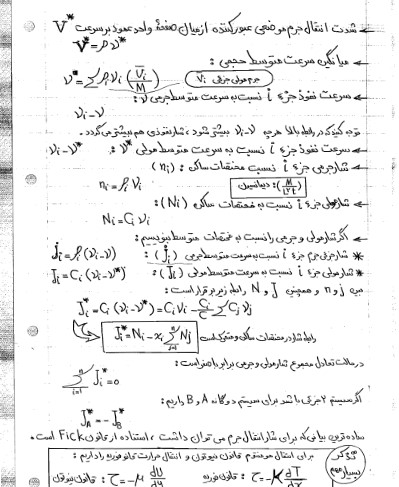 ← شدت انتقال جرم موضعی عبور کننده از میان صفحهٔ واحد عمود بر سرعت V*
V* = ρ v*
← میانگین سرعت متوسط حجمی :
v* = Σ ρᵢ vᵢ (V̄ᵢ/M) حجم مولی جزئی : Vᵢ
← سرعت نفوذ جزء i نسبت به سرعت متوسط جرمی v :
vᵢ - v
توجه کنید که در رابطه بالا هرچه vᵢ - v بیشتر شود، شار نفوذی هم بیشتر می گردد.
← سرعت نفوذ جزء i نسبت به سرعت متوسط مولی v* : vᵢ - v*
← شار جرمی جزء i نسبت مختصات ساکن : (nᵢ)
nᵢ = ρᵢ vᵢ دیمانسیون : (M/L²t)
← شار مولی جزء i نسبت به مختصات ساکن (Nᵢ) :
Nᵢ = Cᵢ vᵢ
← اگر شار مولی و جرمی را نسبت به مختصات متوسط بنویسیم :
jᵢ = ρᵢ (vᵢ - v) * شار جرمی جرم جزء i نسبت به سرعت متوسط جرمی (jᵢ) :
Jᵢ = Cᵢ (vᵢ - v*) * شار مولی جزء i نسبت به سرعت متوسط مولی (Jᵢ) :
بین j و n و همچنین J و N رابطه زیر برقرار است :
Jᵢ* = Cᵢ (vᵢ - v*) = Cᵢ vᵢ - Cᵢ/C Σ Cⱼ vⱼ
Jᵢ* = Nᵢ - xᵢ Σⁿⱼ₌₁ Nⱼ رابطه شار در مختصات ساکن و متحرک است
در حالت تعادل مجموع شار مولی و جرمی برابر با صفر است :
Σⁿᵢ₌₁ Jᵢ* = 0
اگر سیستم ۲ جزئی باشد برای سیستم دوگانه A و B داریم :
J_A* = - J_B*
ساده ترین بیانی که برای شار انتقال جرم می توان داشت ، استفاده از قانون Fick است .
تذکر بسیار مهم برای انتقال مومنتوم قانون نیوتون و انتقال حرارت قانون فوریه را داریم :
قانون نیوتون : τ = -μ dU/dy قانون فوریه : τ = -K dT/dx